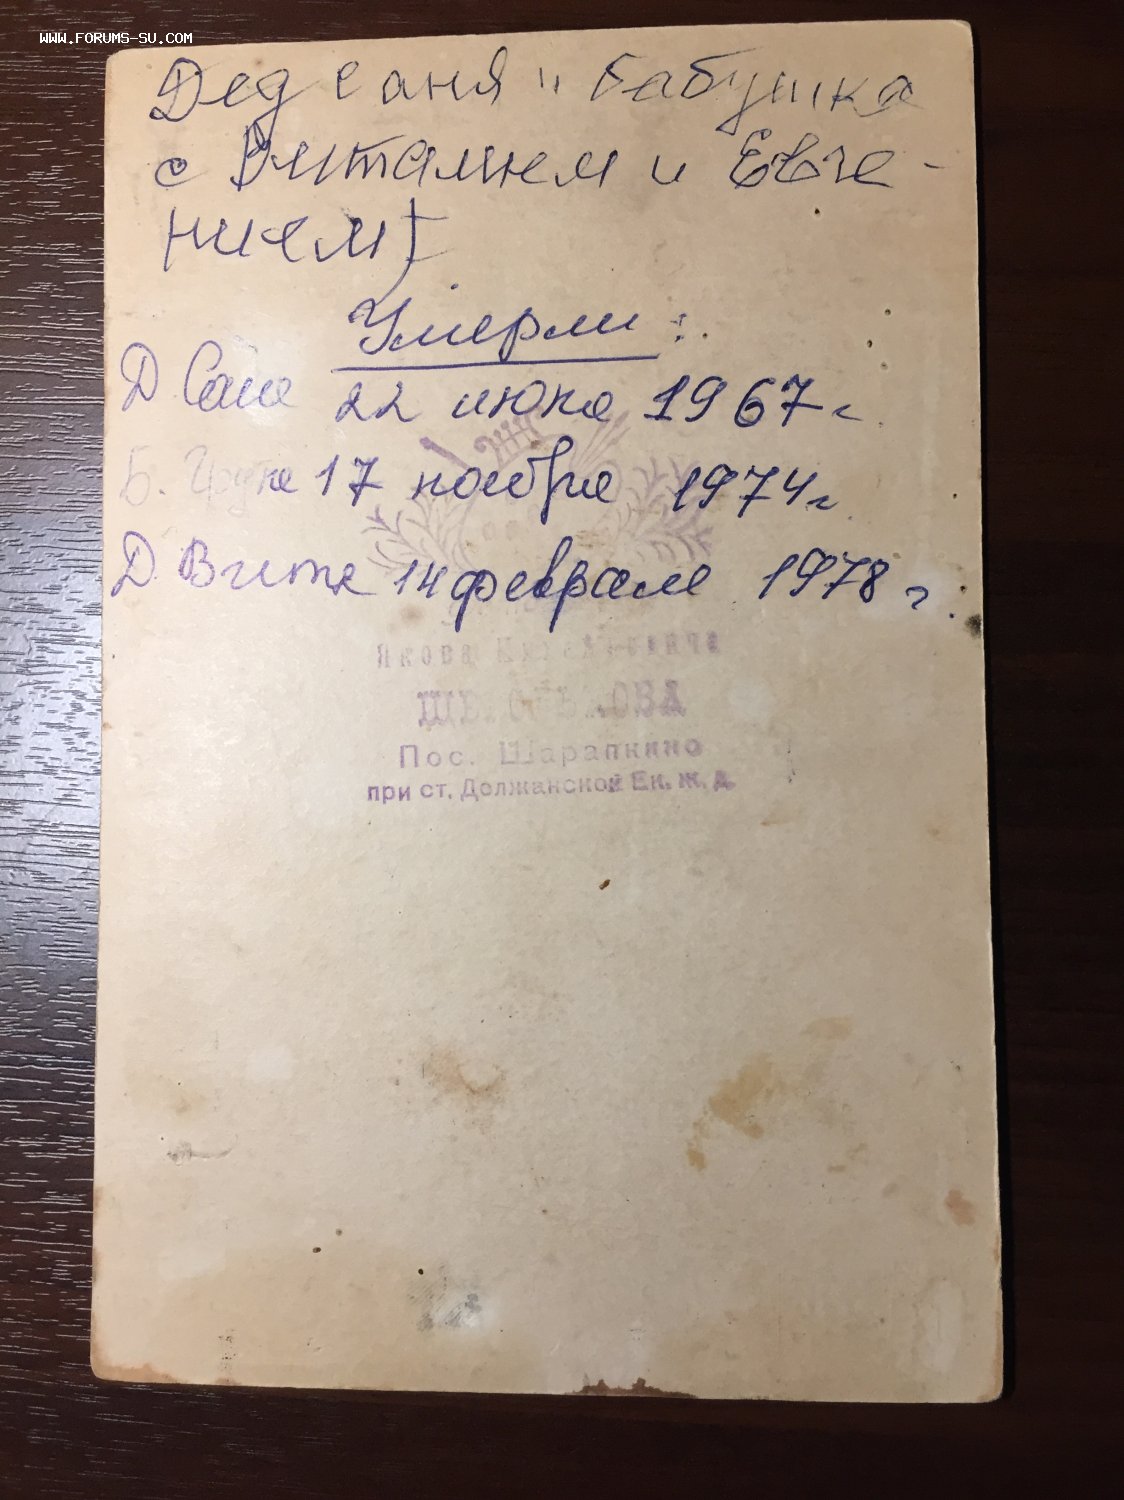 WWW.FORUMS-SU.COM
Дед Саня и бабушка
с Виталием и Евге-
нием)
Умерли:
Д. Саня 22 июня 1967 г.
Б. Груня 17 ноября 1974 г.
Д Витя 14 февраля 1978 г.
Якова
Пос. Шарапкино
при ст. Должанской Ек. ж. д.